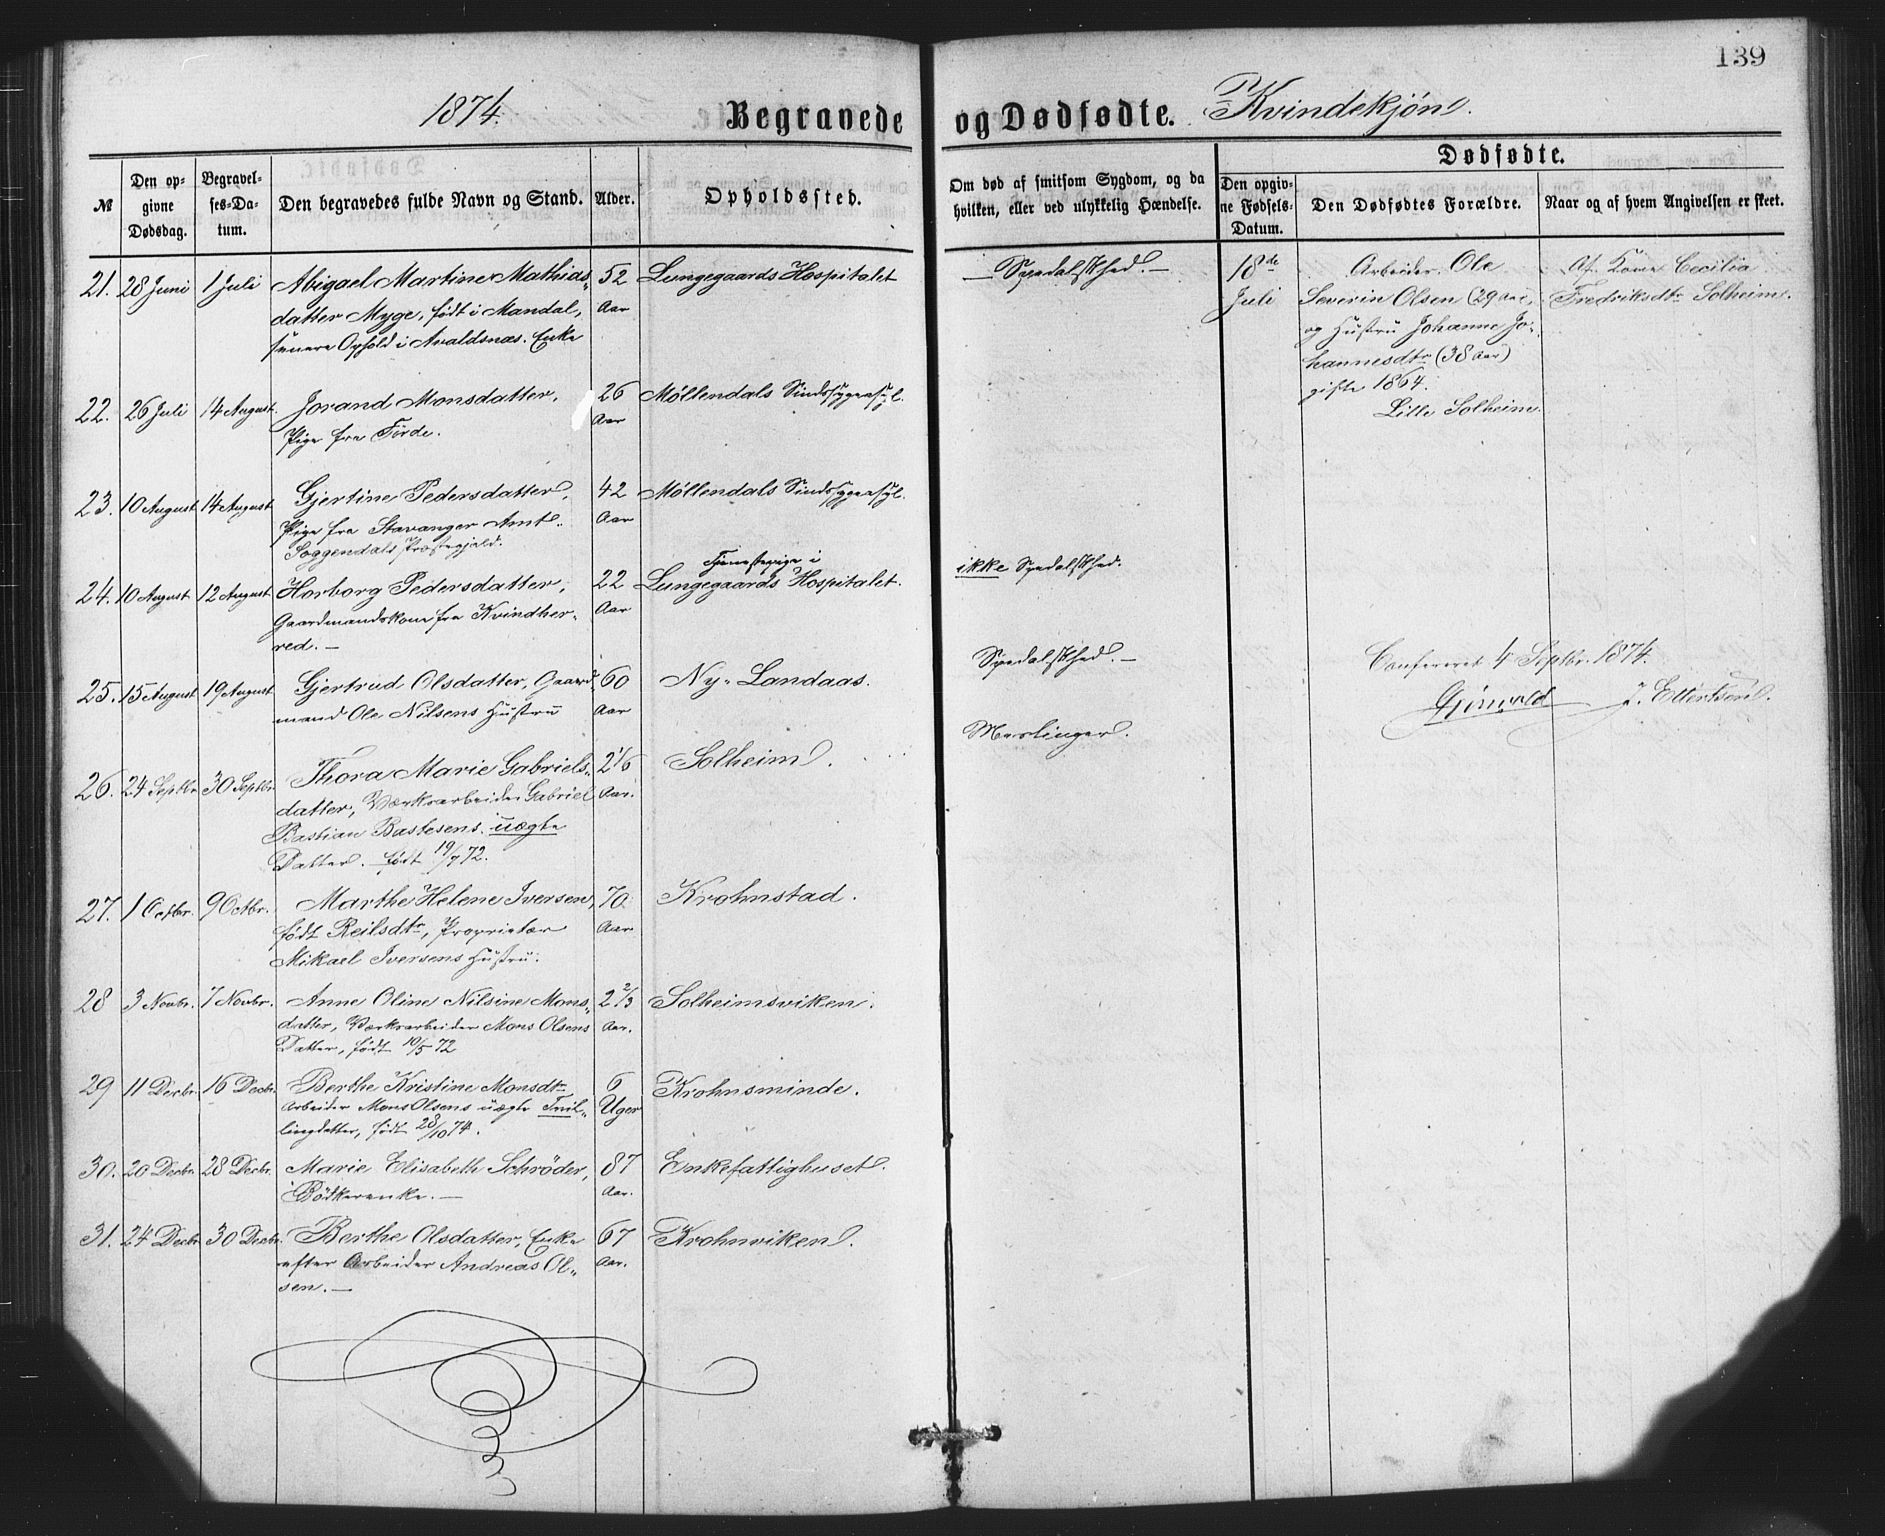 139
1874. Begravede og Dødfødte. Kvindekjøn.
Dødfødte.
№
Den op-
givne
Dødsdag.
Begravel-
ses-Da-
tum.
Den begravedes fulde Navn og Stand.
Alder.
Opholdssted.
Om død af smitsom Sygdom, og da
hvilken, eller ved ulykkelig Hændelse.
Den opgiv-
ne Fødsels-
Datum.
Den Dødfødtes Forældre.
Naar og af hvem Angivelsen er skeet.
21. 28 Juni 1 Juli Abigael Martine Mathias- 52 Lungegaards Hospitalet
datter Myge, født i Mandal, Aar
senere Ophold i Avaldsnæs. Enke
22. 26 Juli 14 August Jorand Monsdatter, 26 Møllendals Sindssygeasyl.
Pige fra Førde. Aar
23. 10 August 14 August Gjertine Pedersdatter, 42 Møllendals Sindssygeasyl.
Pige fra Stavanger Amt. Aar
Soggendals Præstegjeld.
Tjenestepige i
24. 10 August 12 August Horborg Pedersdatter, 22 Lungegaards Hospitalet.
Gaardmandskone fra Kvindher- Aar
red. —
25. 15 August 19 August Gjertrud Olsdatter, Gaard- 60 Ny-Landaas.
mand Ole Nilsens Hustru Aar
26. 24 Septbr. 30 Septbr. Thora Marie Gabriels- 2 1/6 Solheim.
datter, Værksarbeider Gabriel Aar.
Bastian Bastesens uægte
Datter. født 19/7 72.
27. 1 Octbr. 9 Octbr. Marthe Helene Iversen, 70 Krohnstad.
født Reilsdtr, Proprietær Aar
Mikael Iversens Hustru.
28 3 Novbr. 7 Novbr. Anne Oline Nilsine Mons- 2 2/3 Solheimsviken.
datter, Værksarbeider Mons Olsens Aar.
Datter, født 10/5 72
29 11 Decbr. 16 Decbr. Berthe Kristine Monsdtr 6 Krohnsminde.
Arbeider Mons Olsens uægte Tvil- Uger
lingdatter, født 28/10 74.
30. 20 Decbr. 28 Decbr. Marie Elisabeth Schrøder, 87 Enkefattighuset.
Bødkerenke. — Aar.
31. 24 Decbr. 30 Decbr. Berthe Olsdatter, Enke 67 Krohnviken.
efter Arbeider Andreas Ol- Aar.
sen. —
— Spedalskhed. —
ikke Spedalskhed.
Spedalskhed. —
Meslinger.
18de
Juli
Arbeider Ole
Severin Olsen (29 Aar),
og Hustru Johanne Jo-
hannesdtr (38 Aar)
gifte 1864.
Lille Solheim.
Af Kone Cecilia
Fredriksdtr Solheim.
Confereret 4 Septbr. 1874.
Grönvold J. Ellertsen.